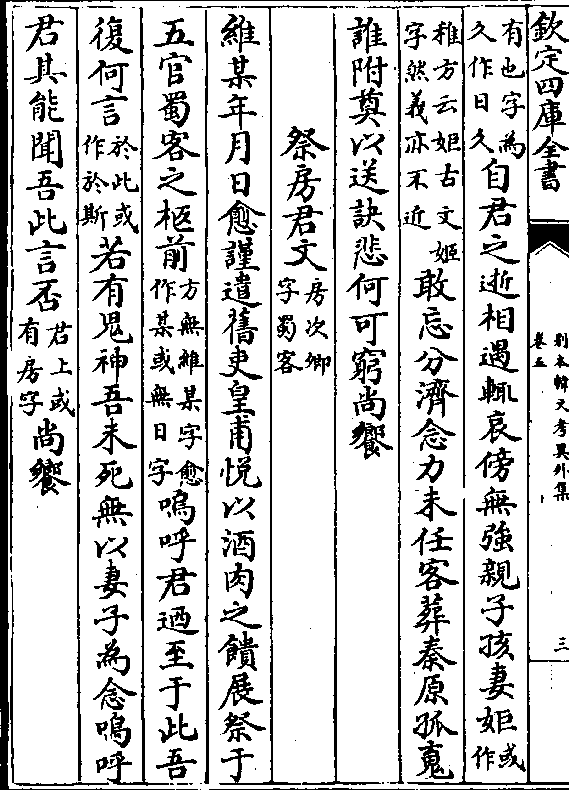 欽定四庫全書
别本韓文考異外集
卷五
三
有也字為久作日久自君之逝相遇輒哀傍無強親子孩妻姖或作
稚方云姖古文姬字然義亦不近敢忘分濟念力未任客葬秦原孤䰟
誰附奠以送訣悲何可窮尚饗
祭房君文房次卿字蜀客
維某年月日愈謹遣舊吏皇甫悅以酒肉之饋展祭于
五官蜀客之柩前方無維某字愈作某或無日字嗚呼君迺至于此吾
復何言於此或作於斯若有鬼神吾未死無以妻子為念嗚呼
君其能聞吾此言否君上或有房字尚饗